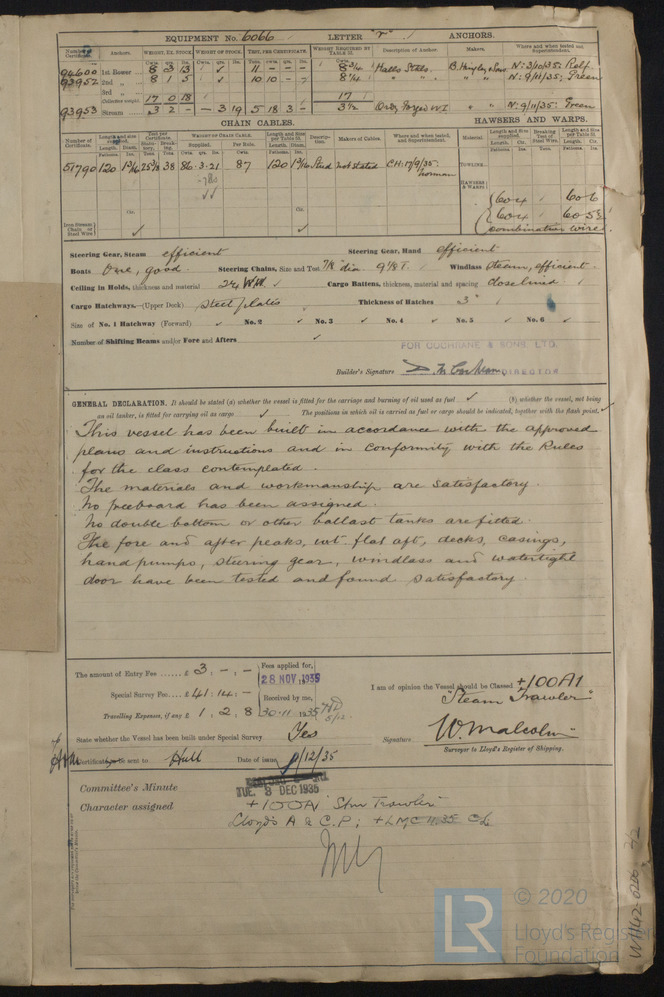 EQUIPMENT No. 6066 LETTER "r" ANCHORS.
Number of Certificate. Anchors. WEIGHT, EX. STOCK. WEIGHT OF STOCK. TEST, PER CERTIFICATE. WEIGHT REQUIRED BY TABLE 53. Description of Anchor. Makers. Where and when tested and Superintendent.
94600 1st Bower 8 3 13 ✓ 11 - - - 8 3/4 Halls Stals. N: 3/10/35:
93952 2nd „ 8 1 5 ✓ 10 10 - 8 1/4 „ „ „ „ N: 9/11/35:
3rd „
(Collective weight) 17 0 18 17
93953 Stream 3 2 - - 3 19 5 18 3 3 1/2 N: 9/11/35:
CHAIN CABLES. HAWSERS AND WARPS.
Number of Certificate. Length and size supplied. Test per Certificate. WEIGHT OF CHAIN CABLE. Length and size per Table 53. Description. Makers of Cables. Where and when tested, and Superintendent. Material. Length and size supplied. Breaking Test of Steel Wire. Length and size per Table 53.
51790 120 1 3/16 25 3/8 38 86.3.21 87 120 1 3/16 Stud not stated CH: 17/9/35: Norman TOWLINE
HAWSERS & WARPS
60 x 60 x 6
60 x 60 x 5
combination wire
Iron Stream Chain or Steel Wire ✓ ✓
Steering Gear, Steam efficient Steering Gear, Hand efficient
Boats One, good. Steering Chains, Size and Test 7/8 dia. 9 1/8 T. Windlass steam, efficient
Ceiling in Holds, thickness and material 2 1/4 W.W. ✓ Cargo Battens, thickness, material and spacing closelined
Cargo Hatchways.—(Upper Deck) Steel plates Thickness of Hatches 3"
Size of No. 1 Hatchway (Forward) ✓ No. 2 ✓ No. 3 ✓ No. 4 ✓ No. 5 ✓ No. 6 ✓
Number of Shifting Beams and/or Fore and Afters ✓
FOR COCHRANE & SONS, LTD.
Builder's Signature DIRECTOR
GENERAL DECLARATION. It should be stated (a) whether the vessel is fitted for the carriage and burning of oil used as fuel ✓ (b) whether the vessel, not being
an oil tanker, is fitted for carrying oil as cargo ✓ The positions in which oil is carried as fuel or cargo should be indicated, together with the flash point. ✓
This vessel has been built in accordance with the approved
plans and instructions and in conformity with the Rules
for the class contemplated.
The materials and workmanship are satisfactory.
No freeboard has been assigned.
No double bottom or other ballast tanks are fitted.
The fore and after peaks, wt. flat aft, decks, casings,
hand pumps, steering gear, windlass and watertight
door have been tested and found satisfactory.
The amount of Entry Fee ...... £ 3 , - , - Fees applied for, 28 NOV 1935
I am of opinion the Vessel should be Classed +100A1
Special Survey Fee.... £ 41 : 14 : - Received by me, "Steam Trawler"
Travelling Expenses, if any £ 1 , 2 , 8 30-11 1935
State whether the Vessel has been built under Special Survey Yes Signature W. Malcolm
Surveyor to Lloyd's Register of Shipping.
Certificate to be sent to Hull Date of issue /12/35
Committee's Minute TUE. 3 DEC 1935
Character assigned +100A1 Stm Trawler
Lloyd's A & C.P; +LMC 11.35 CL
© 2020
LR Lloyd's Register
Foundation
W1142-0206 2/2